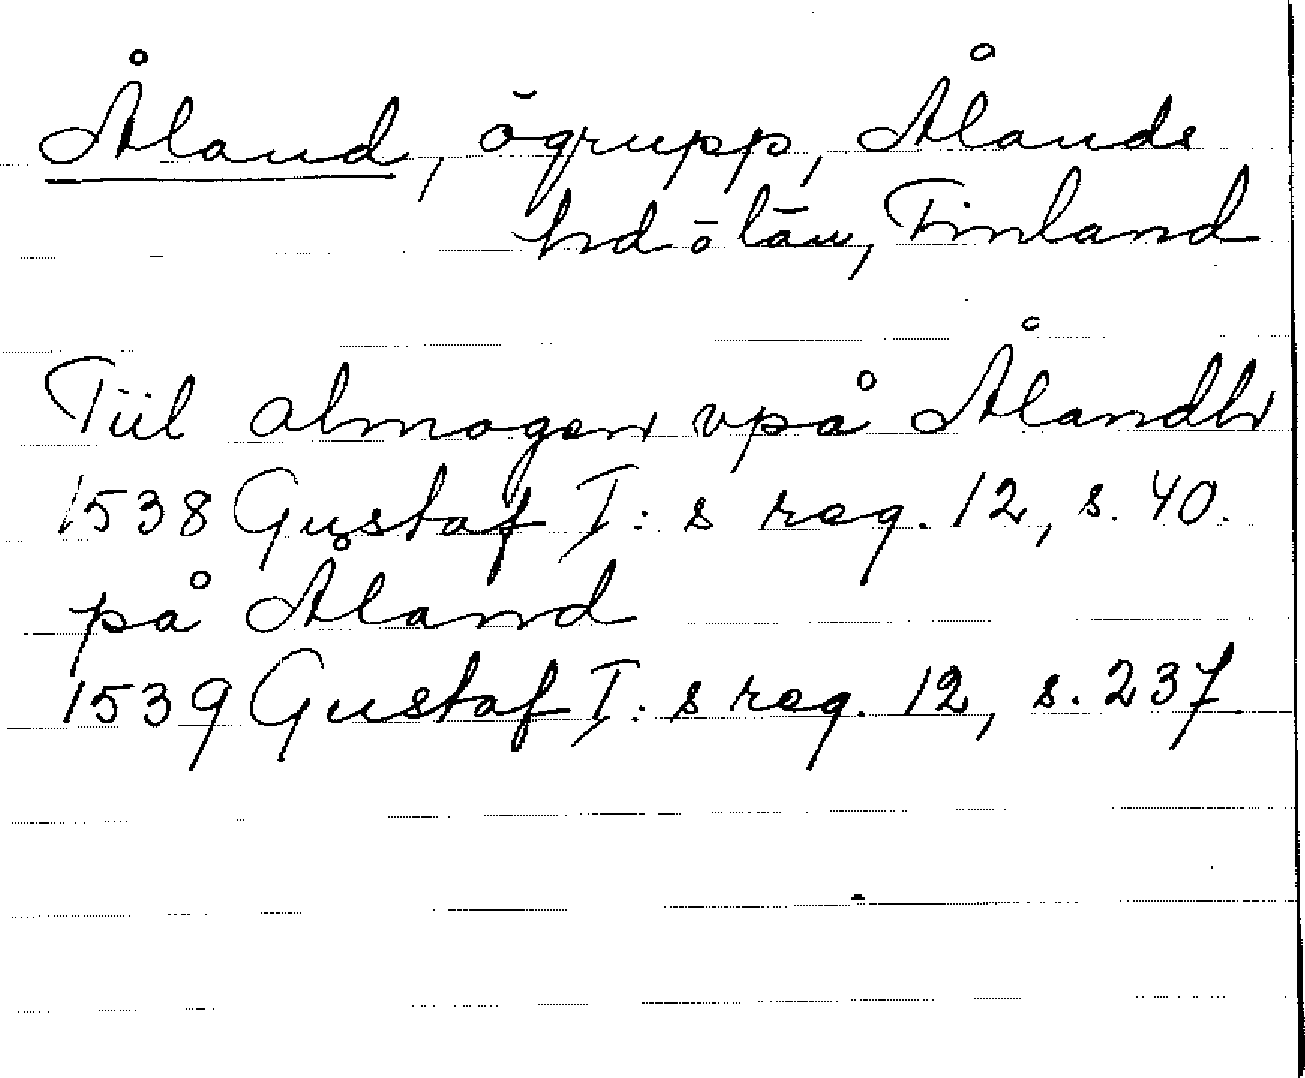 Åland, ögrupp, Ålands
hd ö län, Finland
Tiil almogen vpå Ålandh
1538 Gustaf I:s reg. 12, s. 40.
på Åland
1539 Gustaf I:s reg. 12, s. 237